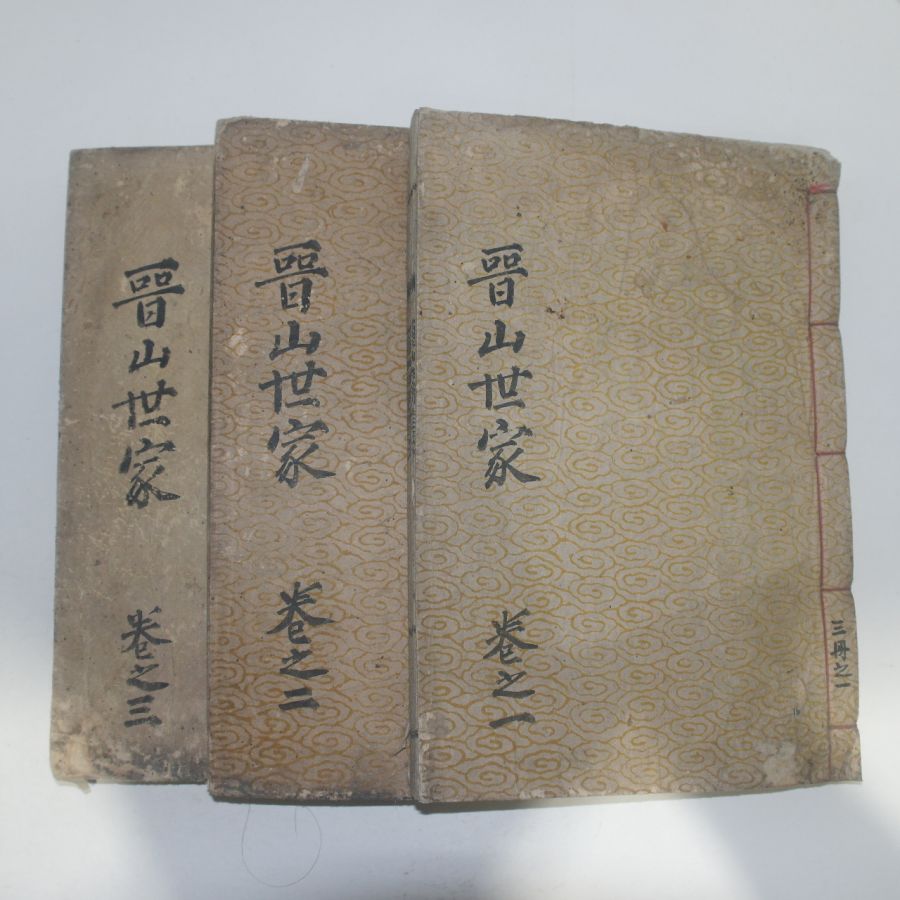 晉山世家
卷之一
三冊之一
晉山世家
卷之二
晉山世家
卷之三